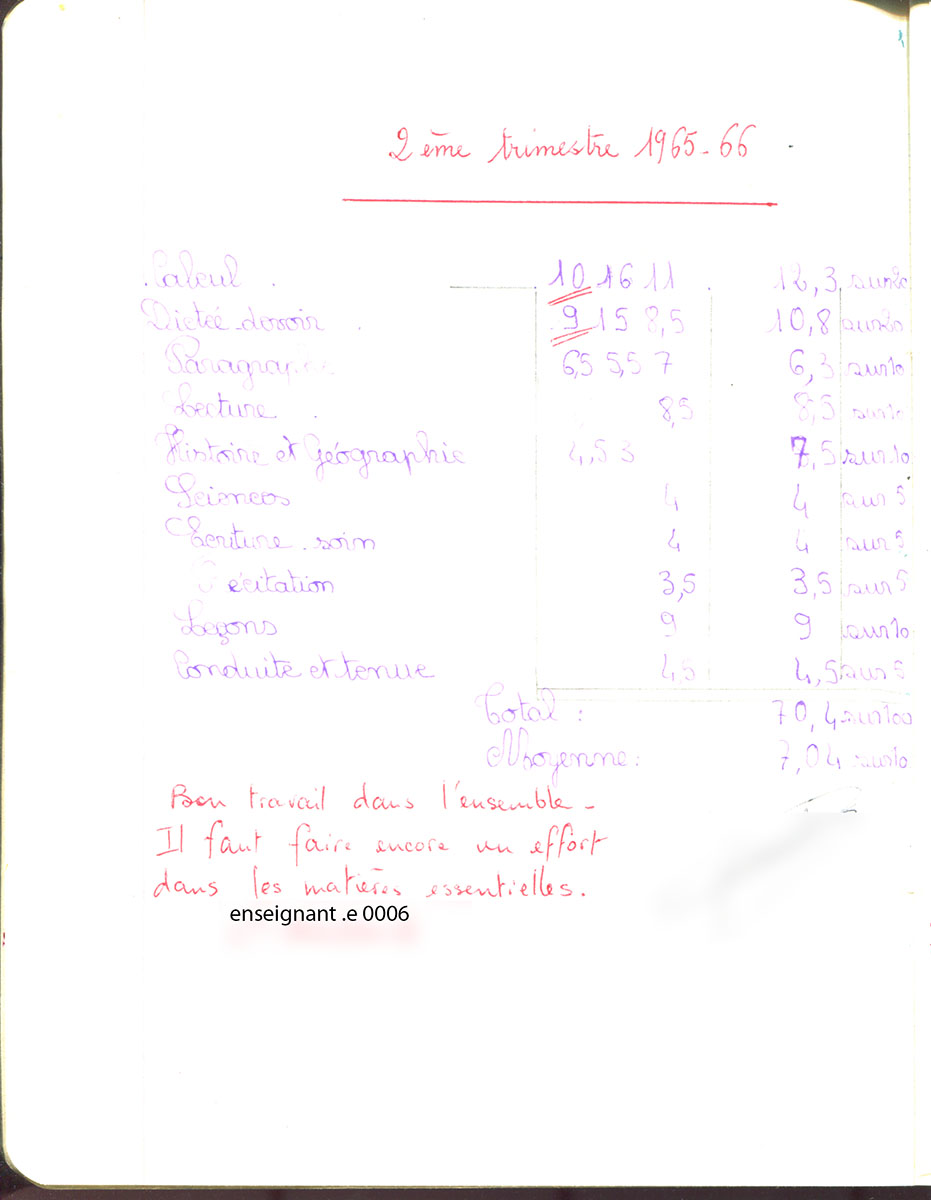 2ème trimestre 1965-66
Calcul 10 16 11 12,3 sur 20
Dictée-devoir 9 15 8,5 10,8 sur 20
6,5 5,5 7 6,3 sur 10
Lecture 8,5 8,5 sur 10
Histoire et Géographie 4,5 3 7,5 sur 10
Sciences 4 4 sur 5
Ecriture-soin 4 4 sur 5
Récitation 3,5 3,5 sur 5
Leçons 9 9 sur 10
Conduite et tenue 4,5 4,5 sur 5
Total : 70,4 sur 100
Moyenne : 7,04 sur 10
Bon travail dans l'ensemble -
Il faut faire encore un effort
dans les matières essentielles.
enseignant .e 0006